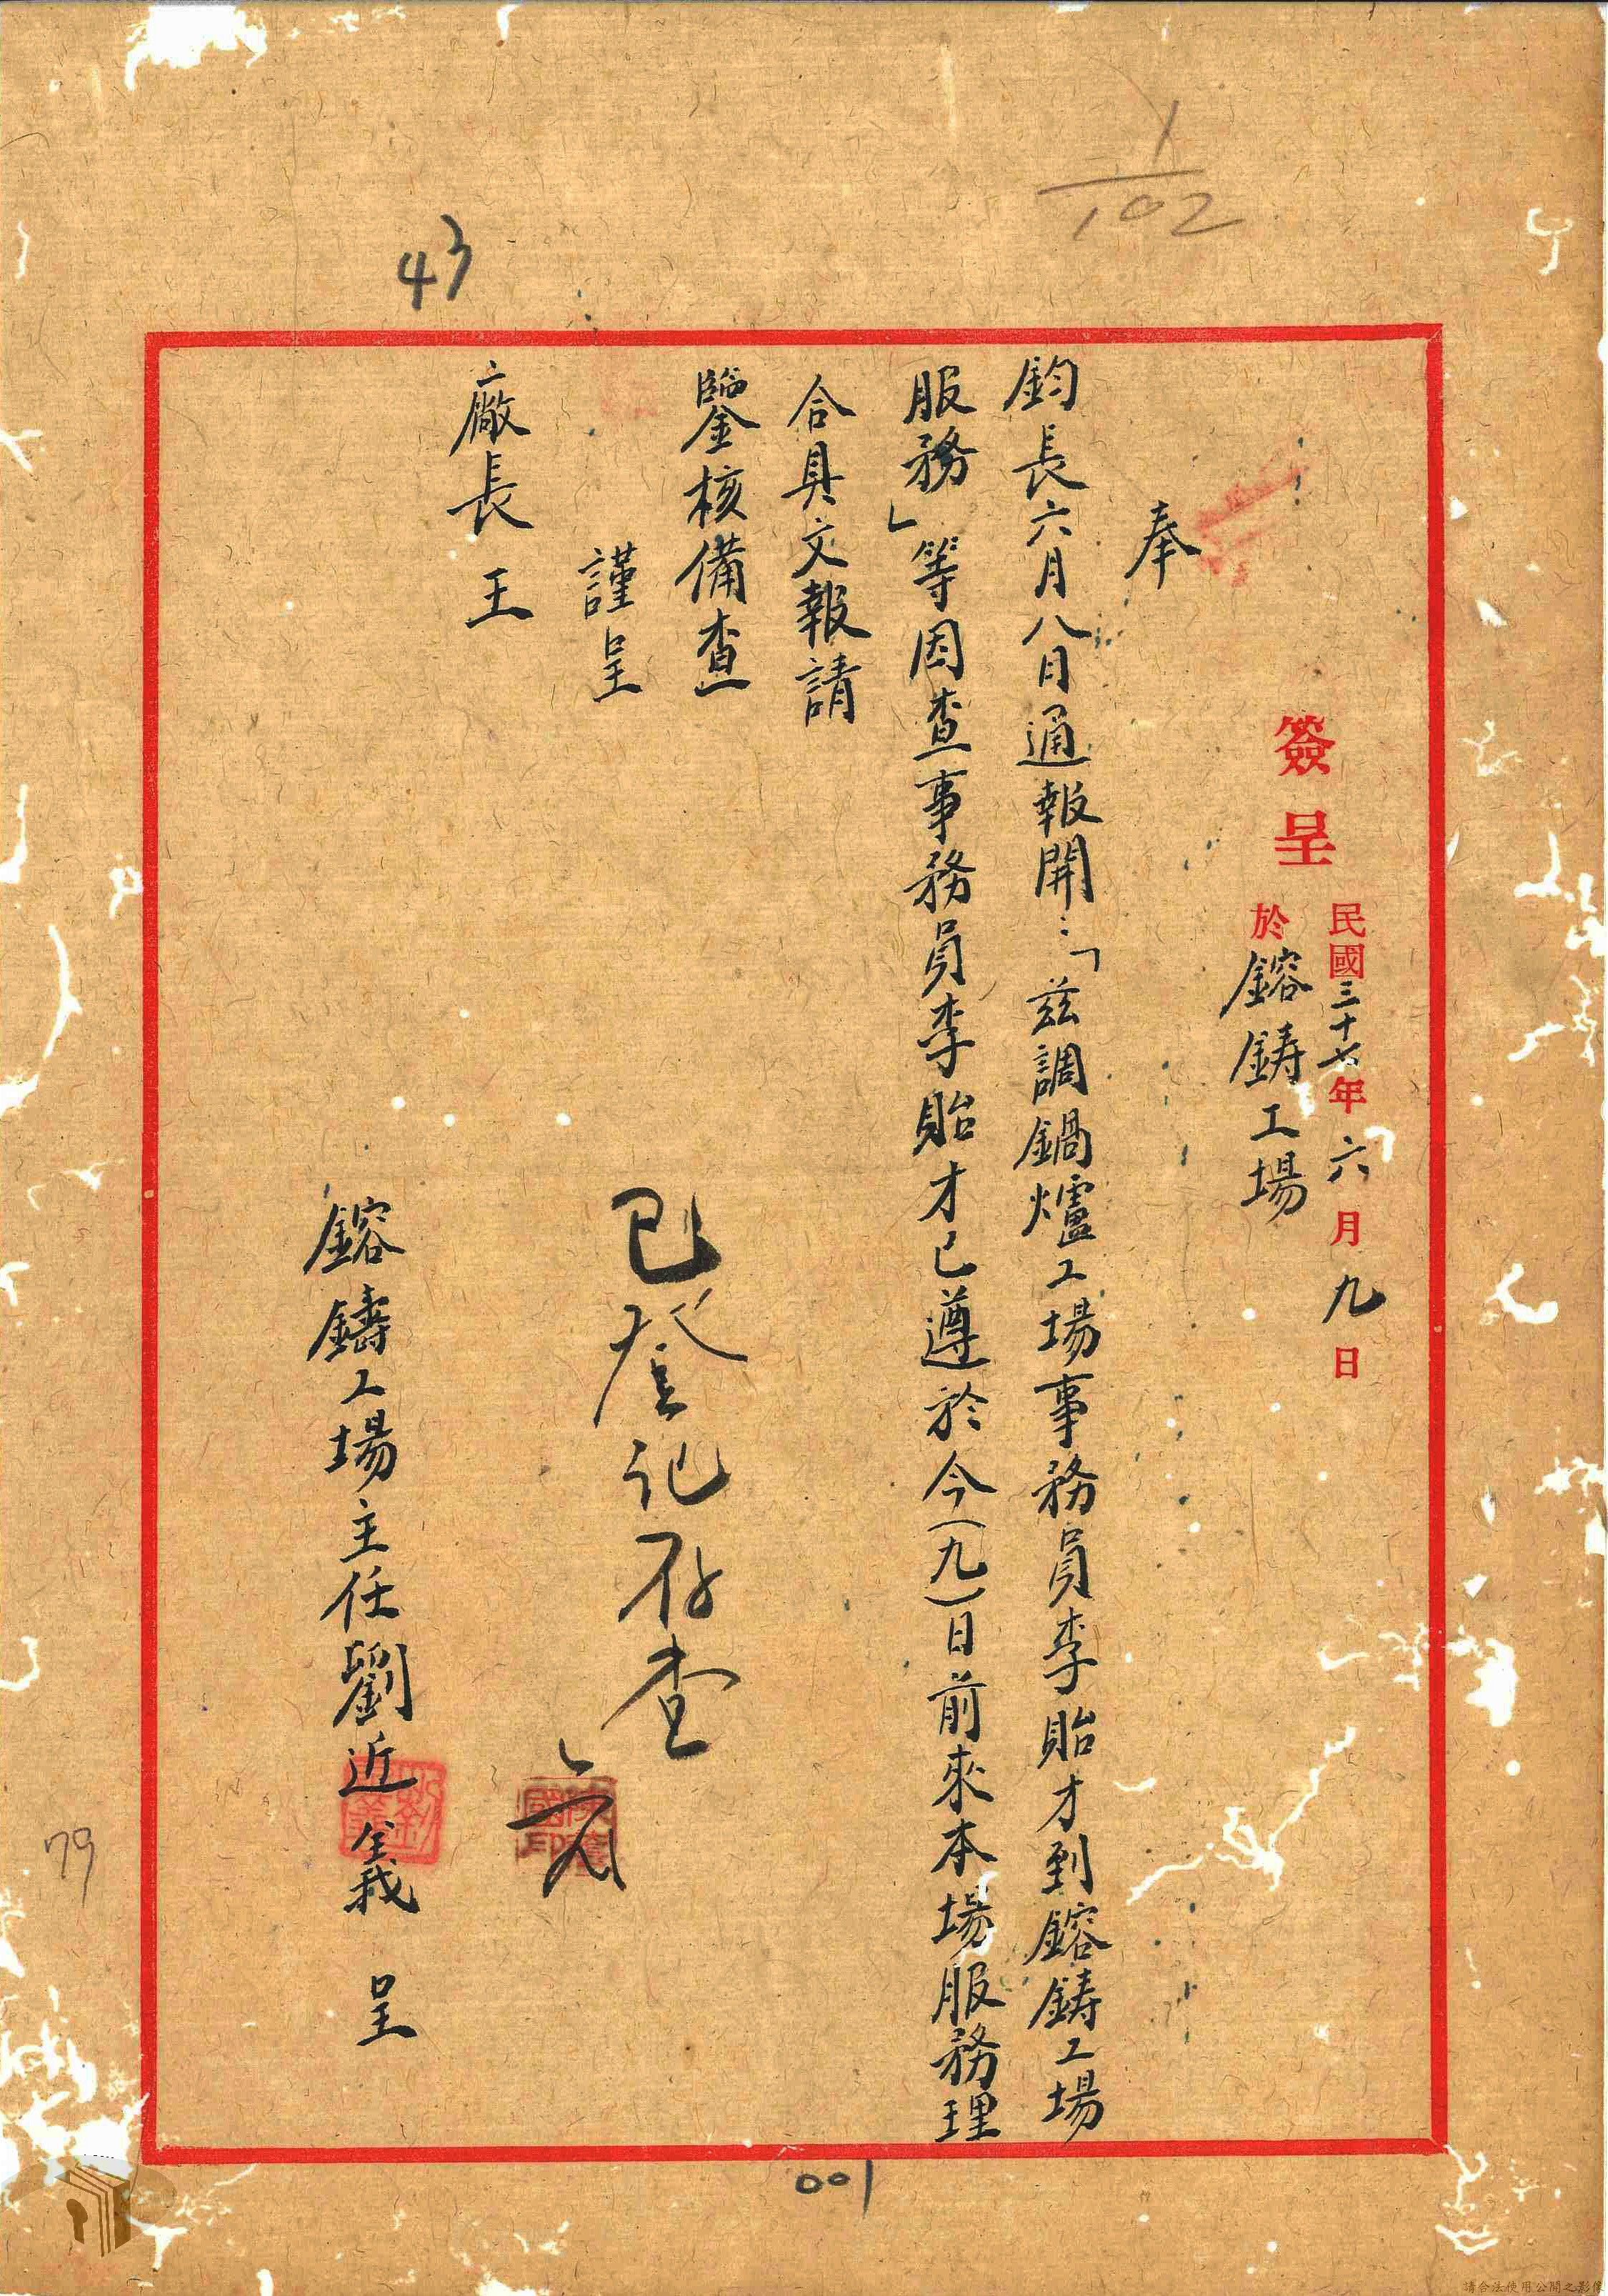 1/102
43
簽呈
民國三十七年六月九日
於鎔鋳工場
奉
鈞長六月八日通報開：「茲調鍋爐工場事務員李貽才到鎔鋳工場
服務」等因查事務員李貽才已遵於今（九）日前來本場服務理
合具文報請
鑒核備查
謹呈
廠長王
已登記存查
鎔鑄工場主任劉近義呈
79
001
請合法使用公開之影像